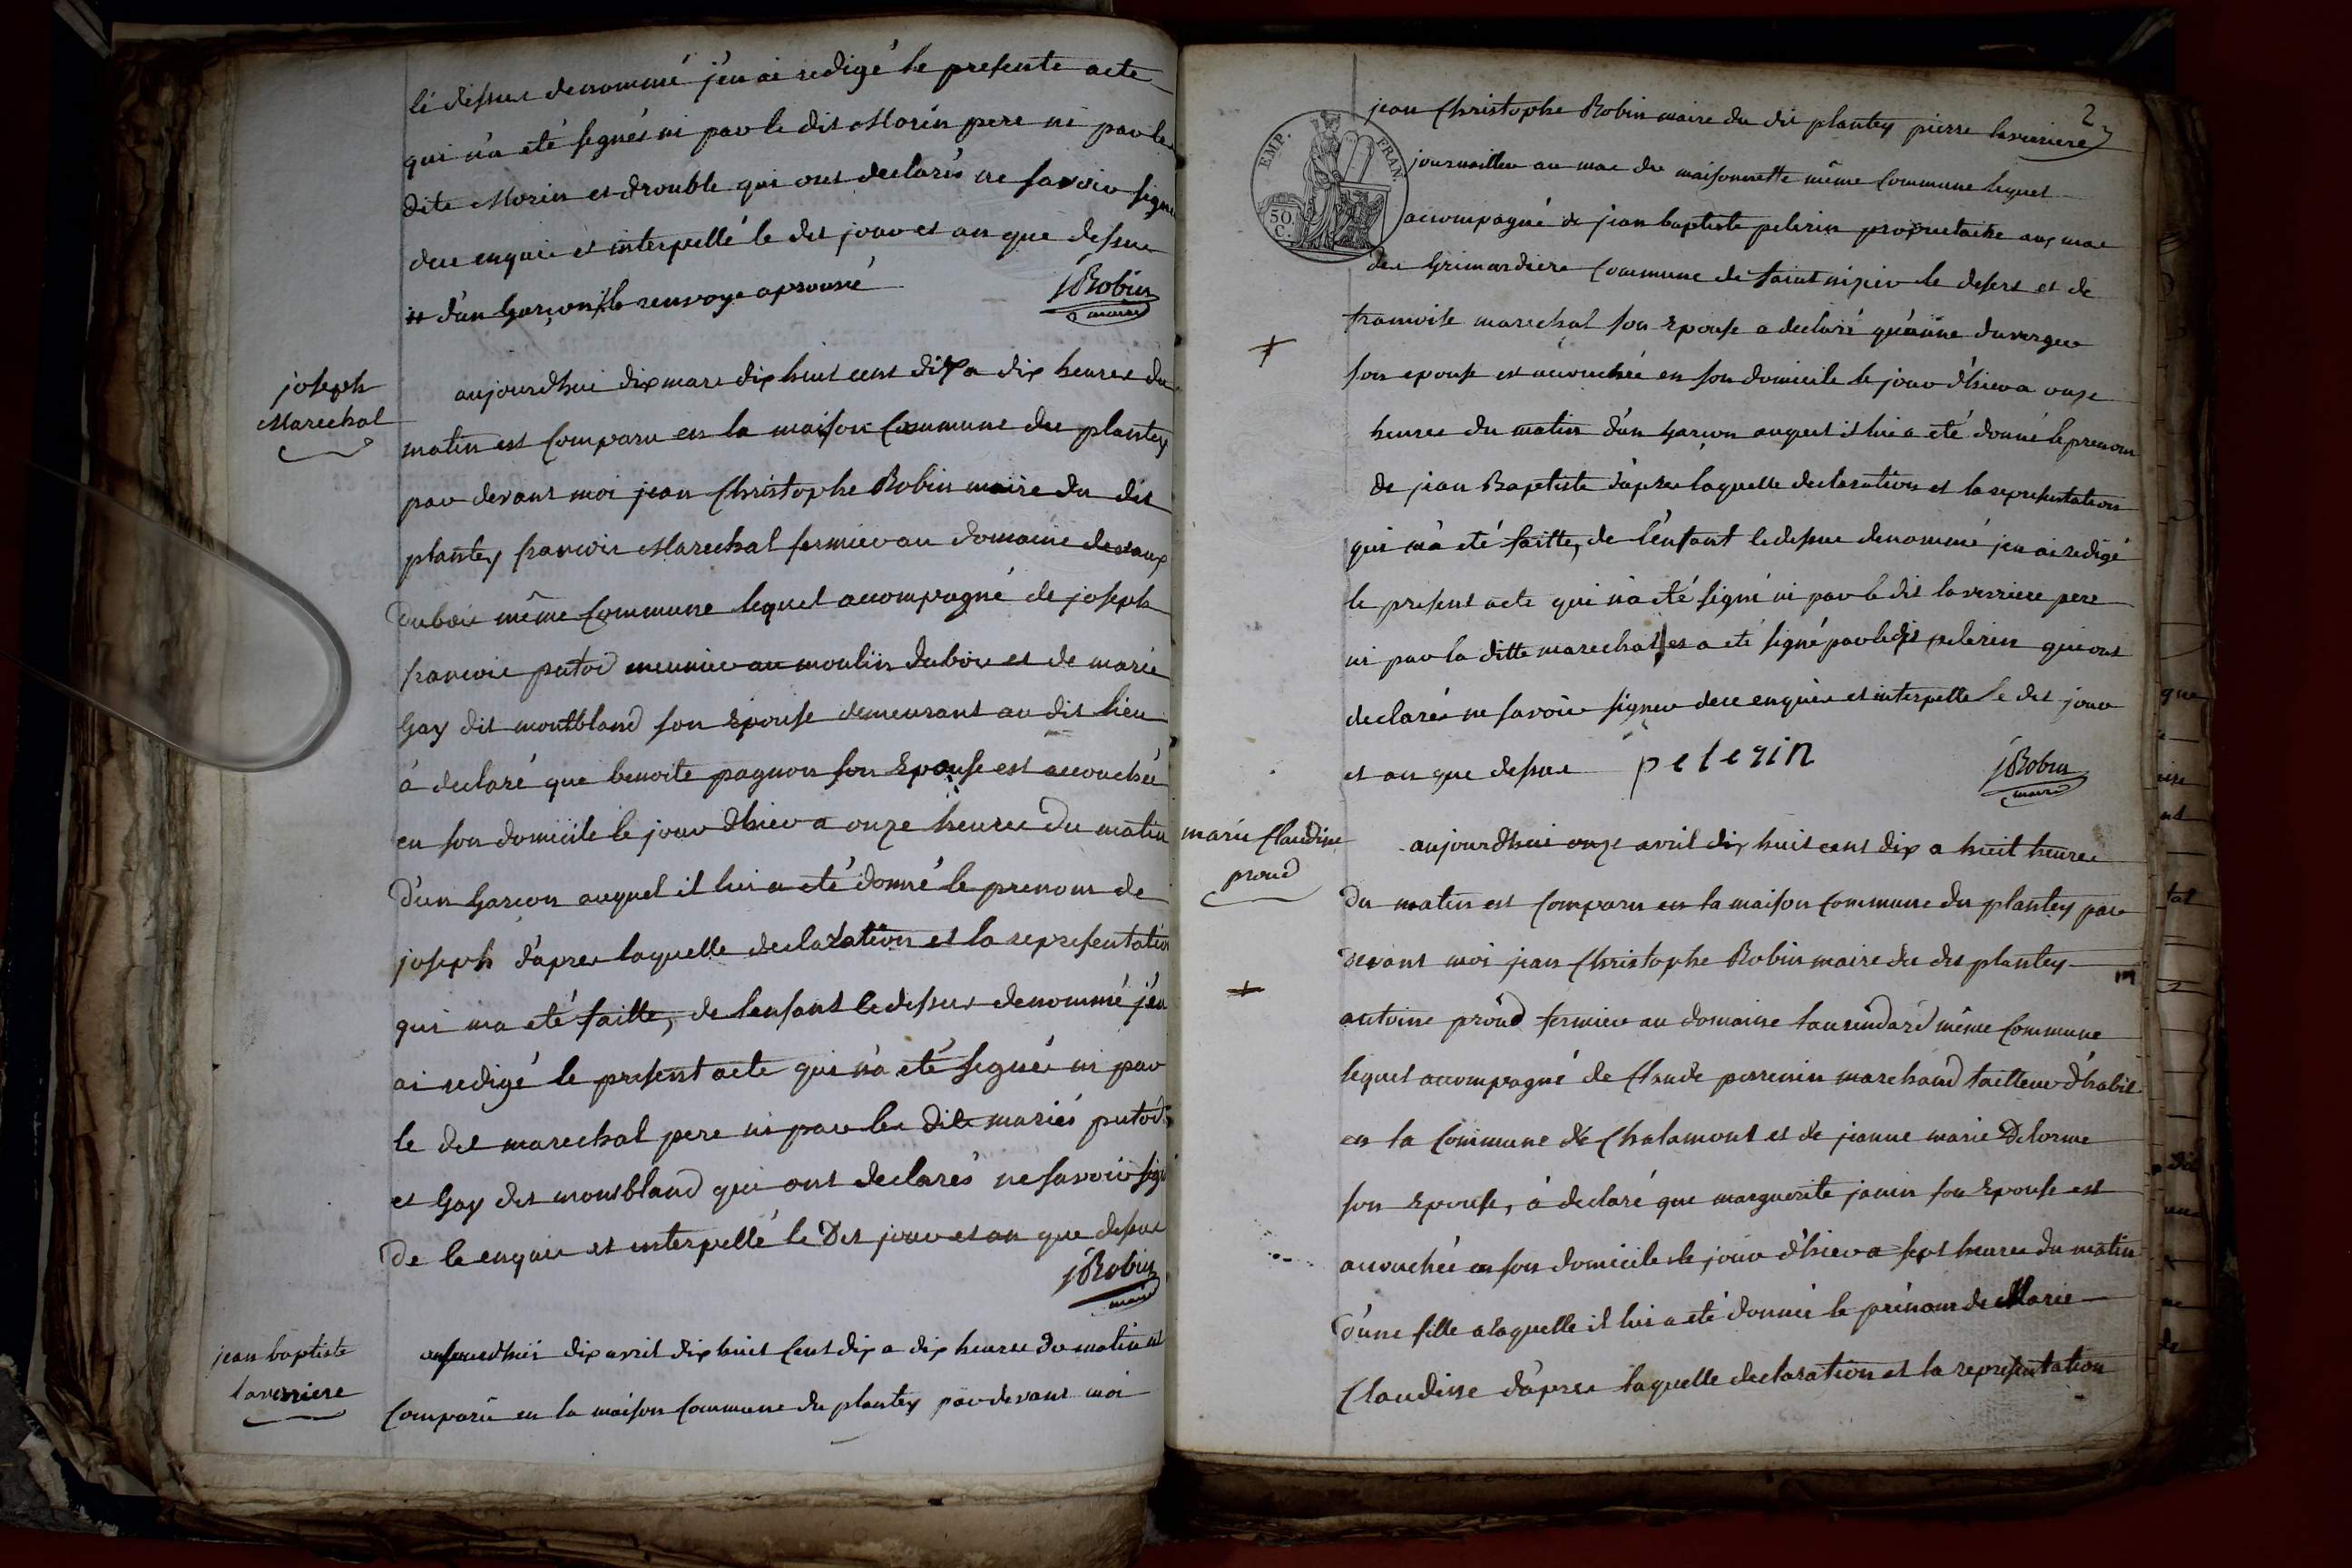 lé dessus denommé j'en ai redigé le presente acte
qui n'a eté signés ni par le dit Morin pere ni par les
dits Morin et drouble qui ont declarés ne savoir signe
dece enquis et interpellé le dit jour et an que dessus
d'un Garçon le renvoye aprouvé
JRobin
maire
joseph
Marechal
aujourdhui dix mars dix huit cent dix a dix heures du
matin est Comparu en la maison Commune du plantey
par devant moi jean Christophe Robin maire du dit
plantey francois Marechal fermier au domaine devaux
dubois même Commune lequel accompagné de joseph
francois putod meunier au moulin dubois et de marie
Gay dit montbland son Epouse demeurant au dit lieu
à declaré que benoite pagnon son Epouse est accouchée
en son domicile le jour dhier a onze heures du matin
d'un Garcon auquel il lui a eté donné le prenom de
joseph d'apres laquelle declaration et la representation
qui ma eté faitte, de lenfant ledessus denommé j'en
ai redigé le present acte qui n'a eté signés ni par
le dit marechal pere ni par les dits mariés putod
et Gay dit montbland qui ont declarés ne savoir sign
de le enquis et interpellé le Dit jour et an que dessus
JRobin
maire
jean baptiste
laverriere
aujourdhui dix avril dix huit Cent dix a dix heures du matin est
Comparu en la maison Commune du plantey par devant moi
2
EMP. FRAN.
50.
C.
jean Christophe Robin maire du dit plantey pierre laverriere
journaillier au mas de maisonnette même Commune lequel
accompagné de jean baptiste pelerin proprietaire aux mas
des Grimardiere Commune de saint nizier le desert et de
francoise marechal son Epouse a declaré qu'anne duverger
son epouse est accouchée en son domicile le jour d'hier a onze
heures du matin d'un garcon auquel il lui a eté donné le prenom
de jean Baptiste d'apres laquelle declaration et la representation
qui m'a eté faitte, de l'enfant ledessus denommé jen ai redigé
le present acte qui n'a eté signé ni par le dit laverriere pere
ni par la ditte marechal et a eté signé par ledit pelerin qui ont
declarés ne savoir signer dece enquis et interpellé le dit jour
et an que dessus pelerin
JRobin
maire
marie Claudine
proud
aujourdhui onze avril dix huit cent dix a huit heures
du matin est Comparu en la maison Commune du plantey par
devant moi jean Christophe Robin maire du dit plantey
antoine proud fermier au domaine même Commune
lequel accompagné de Claude perrenin marchand tailleur d'habit
en la Commune de Chalamont et de jeanne marie Delorme
son Epouse, à declaré que marguerite janin son Epouse est
accouchée en son domicile le jour d'hier a sept heures du matin
d'une fille a laquelle il lui a eté donnée le prénom de Marie
Claudine d'apres laquelle declaration et la representation